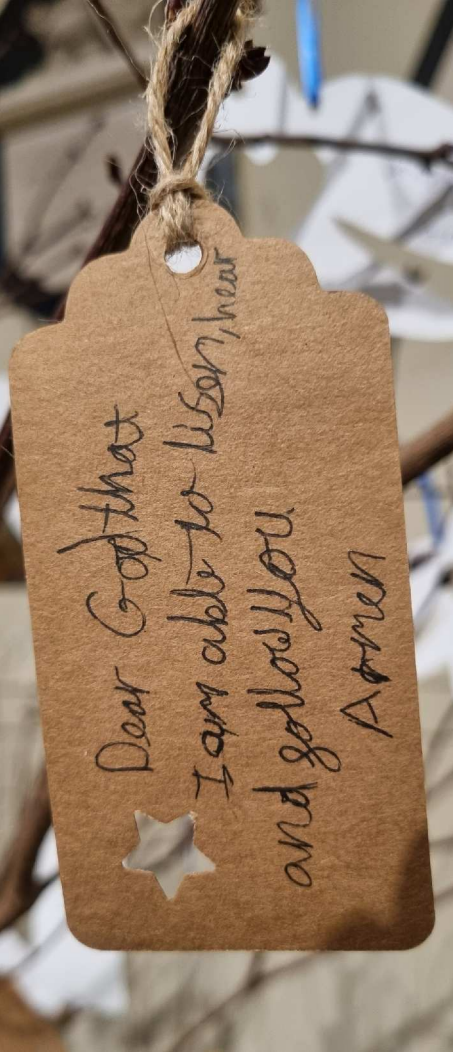 Dear God that
I am able to lisen, hear
and follow you
Amen